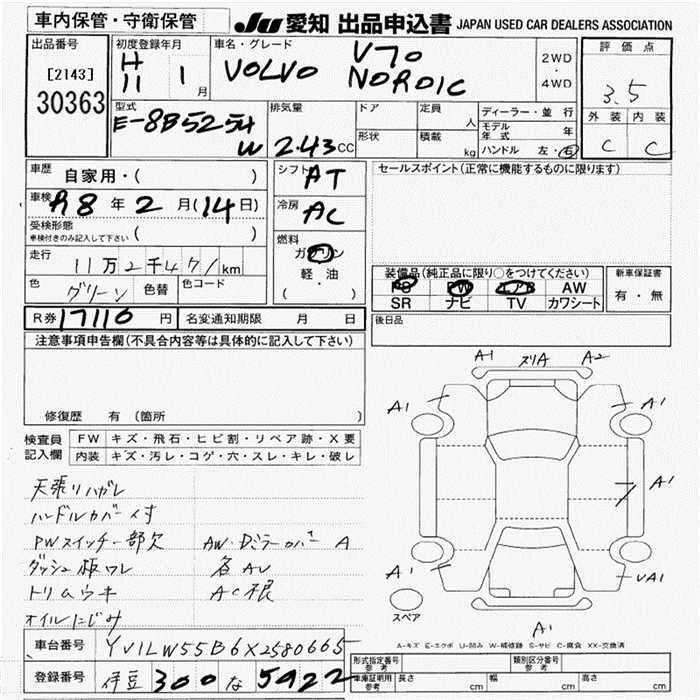 車内保管・守衛保管
JU 愛知 出品申込書 JAPAN USED CAR DEALERS ASSOCIATION
出品番号
[2143]
30363
初度登録年月
H 11 1月
車名・グレード
VOLVO V70 NORDIC
2WD・4WD
評価点
3.5
外装 内装
C C
型式
E-8B5254W
排気量
2.43CC
ドア
形状
定員 人
積載 kg
ディーラー・並行
モデル年式 年
ハンドル 左・右
車歴
自家用・( )
車検
R8年2月(14日)
受検形態
車検付きのみ記入して下さい ( )
走行
11万2千471km
色
グリーン
色替
色コード
シフト
AT
冷房
AC
燃料
ガソリン
軽・油
( ・ )
セールスポイント(正常に機能するものに限ります)
装備品(純正品に限り○をつけてください)
PS PW エアB AW
SR ナビ TV カワシート
新車保証書
有・無
R券 17110円
名変通知期限 月 日
後日品
注意事項申告欄(不具合内容等は具体的に記入して下さい)
修復歴 有 (箇所 )
検査員記入欄
FW キズ・飛石・ヒビ割・リペア跡・X要
内装 キズ・汚レ・コゲ・穴・スレ・キレ・破レ
天張リハガレ
ハンドルカバー付
PWスイッチ一部欠
AW・Dミラーカバー A
ダッシュ板ワレ
各AU
トリムウキ
AC根
オイルにじみ
A1 スリA A2
A1 A1
A1
A1 UA1
A1
スペア
A-キズ E-エクボ U-凹み W-補修跡 S-サビ C-腐食 XX-交換済
車台番号
YV1LW55B6X2580665
登録番号
伊豆 300 な 5922
形式指定番号
参考
類別区分番号
参考
車庫証明用
参考
長さ cm
幅 cm
高さ cm